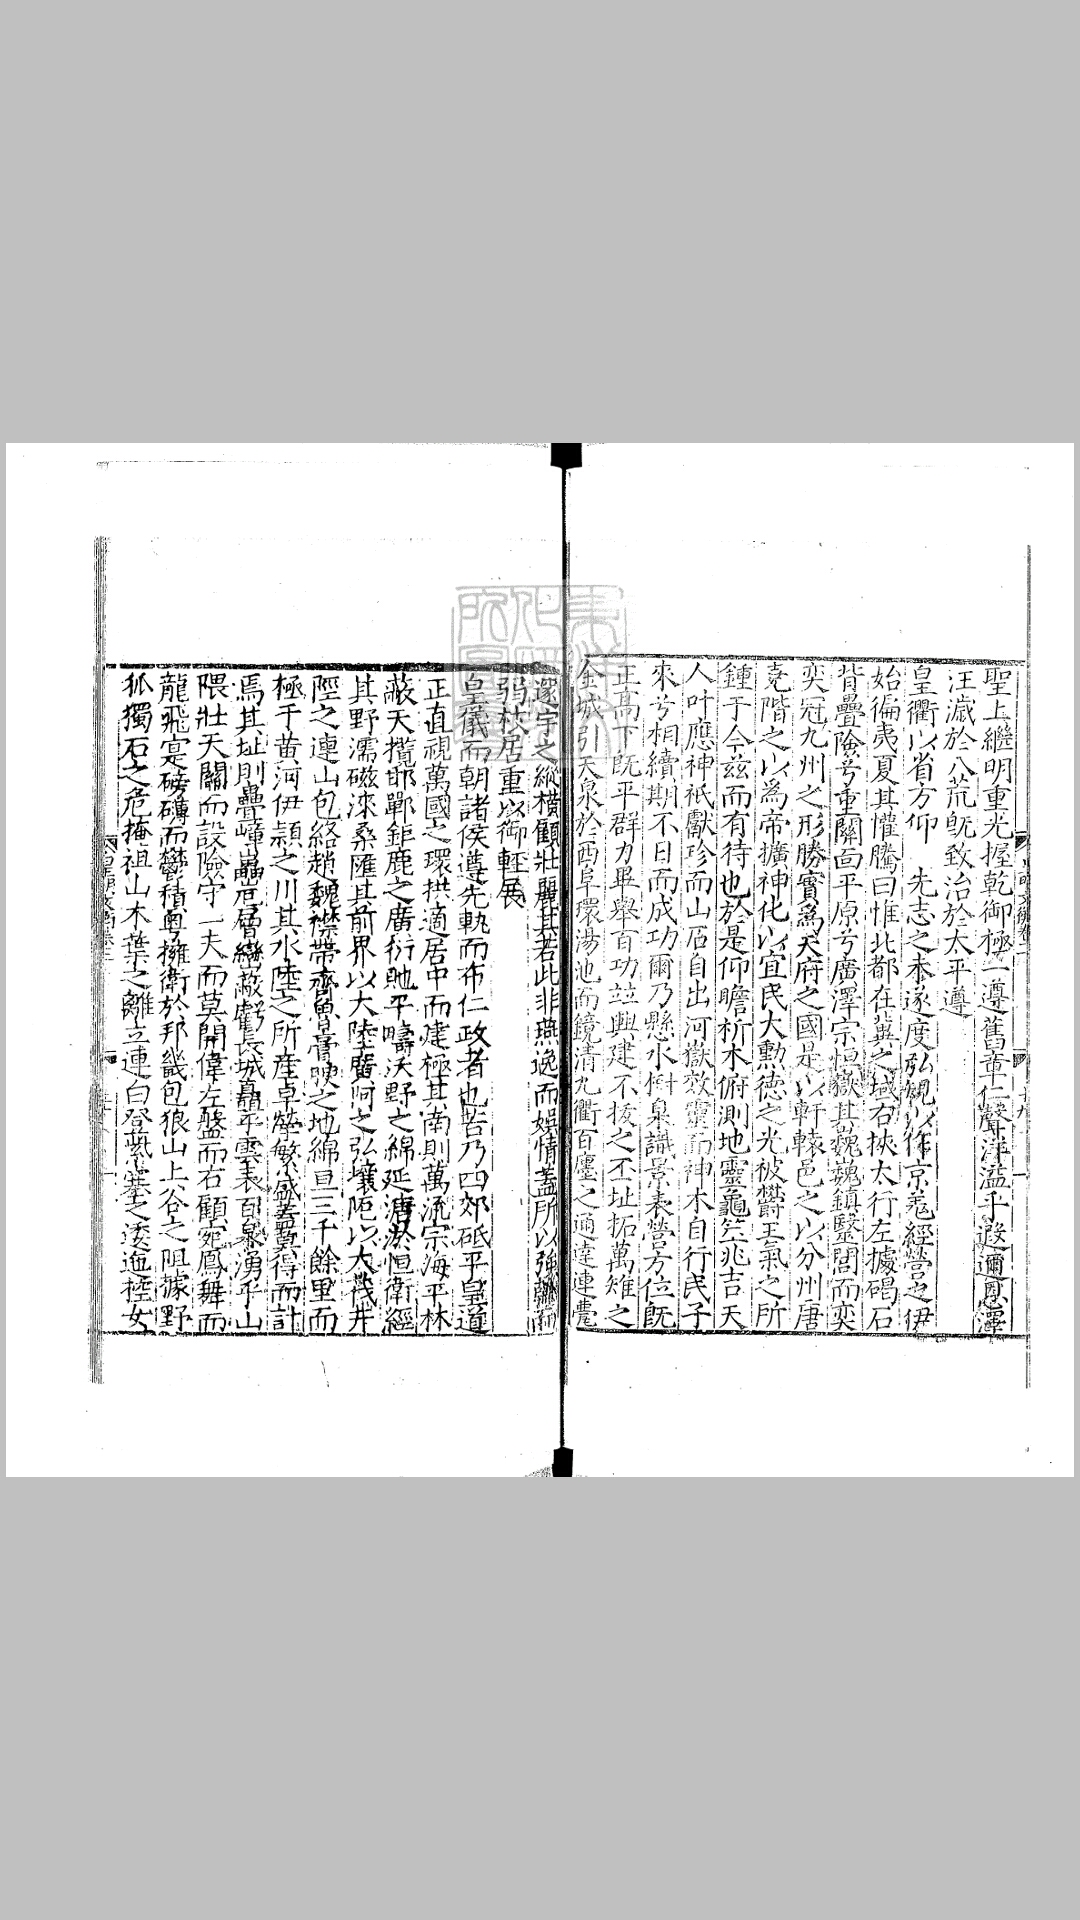 聖上繼明重光握乾御極一遵舊章仁聲洋溢乎遐邇恩澤
汪濊於八荒旣致治於太平遵
皇衢以省方仰　先志之未遂度弘規以作京羗經營之伊
始徧夷夏其懽騰曰惟北都在冀之域右挾太行左據碣石
背疊險兮重關面平原兮廣澤宗恒嶽其巍巍鎮毉閭而奕
奕冠九州之形勝實爲天府之國是以軒轅邑之以分州唐
堯階之以爲帝擴神化以宜民大勳德之光被欝王氣之所
鍾于今茲而有待也於是仰瞻析木俯測地靈龜筮兆吉天
人叶應神祇獻珍而山石自出河嶽效靈而神木自行民子
來兮相續期不日而成功爾乃懸水樹臬識景表營方位旣
正高下旣平群力畢舉百功竝興建不拔之丕址拓萬雉之
金城引天泉於西阜環湯池而鏡清九衢百廛之通達連甍
邃宇之縱横顧壯麗其若此非燕逸而娛情蓋所以強
弱枝居重以御輕展
皇儀而朝諸侯遵先軌而布仁政者也若乃四郊砥平皇道
正直視萬國之環拱適居中而建極其南則萬流宗海平林
蔽天攬邯鄲鉅鹿之廣衍貤平疇沃野之綿延滹淤恒衛經
其野濡磁淶桑匯其前界以大陸廣阿之弘壤阨以大伐井
陘之連山包絡趙魏襟帶齊魯膏腴之地綿亘三千餘里而
極于黄河伊頴之川其水陸之所産卓犖繁盛蓋莫得而計
焉其北則疊嶂巑岏層巒蔽虧長城矗乎雲表百泉湧乎山
隈壯天關而設險守一夫而莫開偉左盤而右顧宛鳳舞而
龍飛寔磅礴而欝積粤擁衛於邦畿包狼山上谷之阻據野
狐獨石之危掩祖山木葉之離立連白登紫塞之逶迤極女